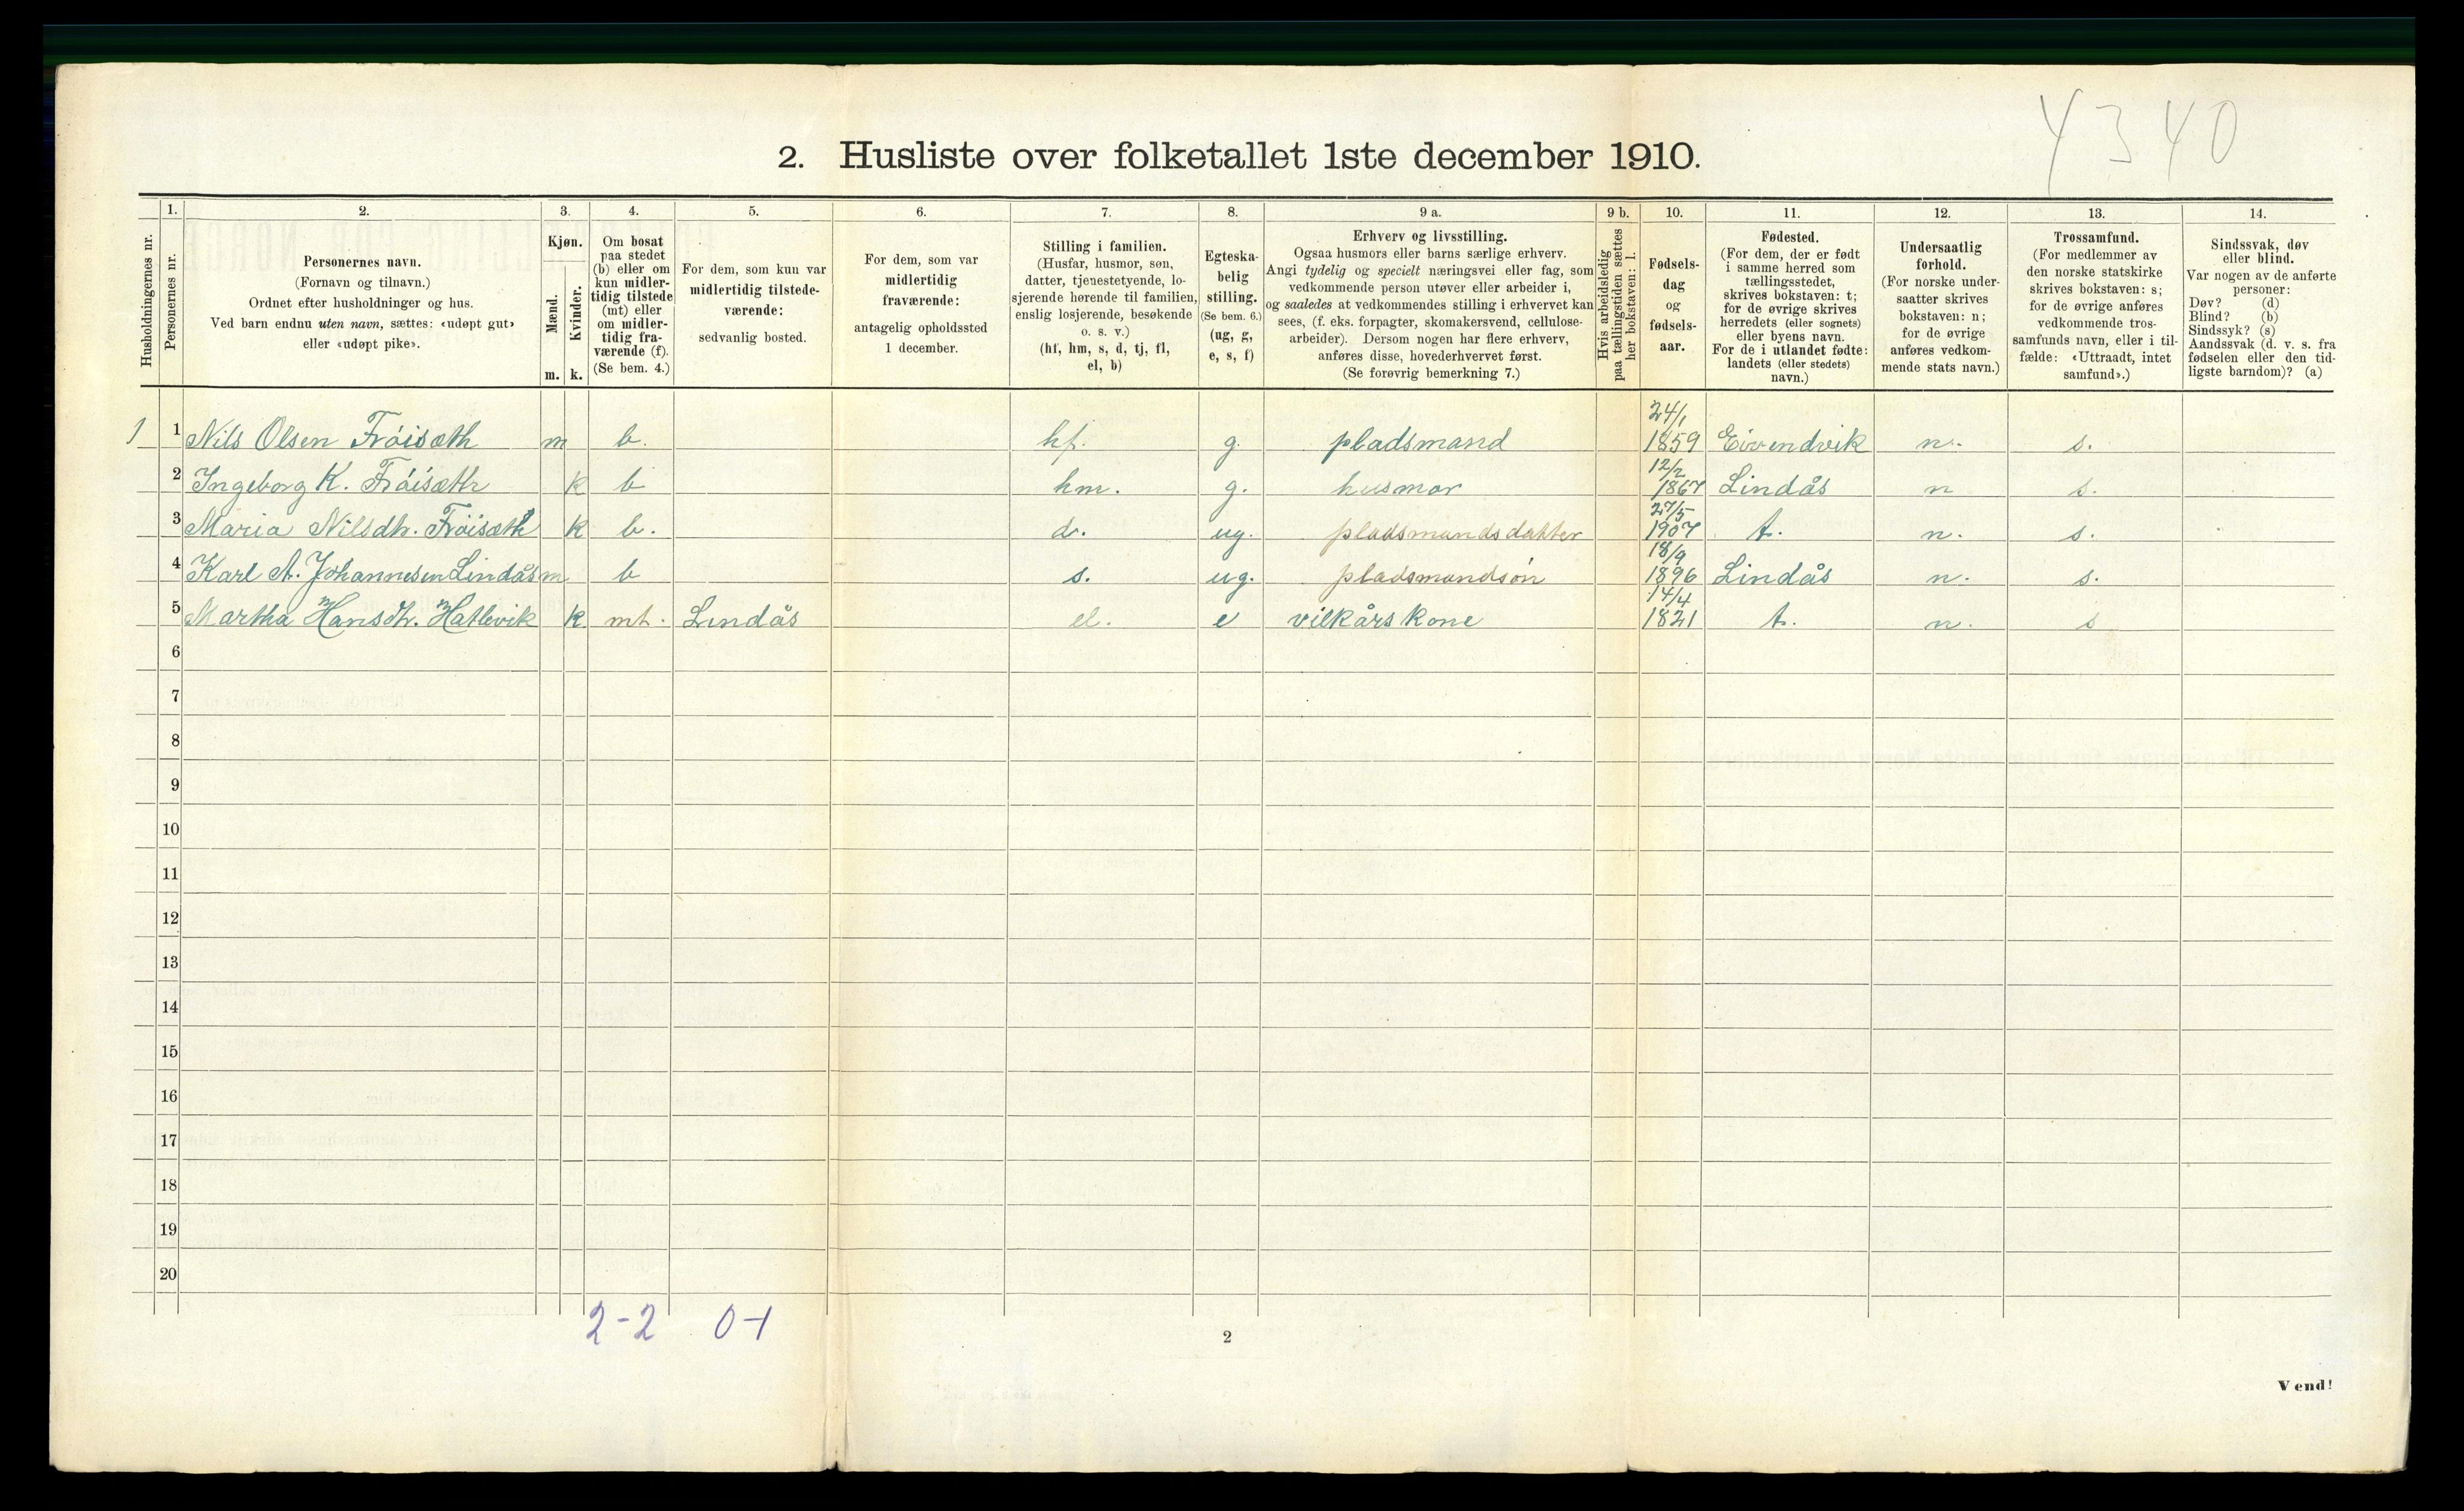 4340
2. Husliste over folketallet 1ste december 1910.
Husholdningernes nr.
1.
Personernes nr.
2.
Personernes navn.
(Fornavn og tilnavn.)
Ordnet efter husholdninger og hus.
Ved barn endnu uten navn, sættes: «udøpt gut»
eller «udøpt pike».
3.
Kjøn.
Mænd.
m.
Kvinder.
k.
4.
Om bosat
paa stedet
(b) eller om
kun midler-
tidig tilstede
(mt) eller
om midler-
tidig fra-
værende (f).
(Se bem. 4.)
5.
For dem, som kun var
midlertidig tilstede-
værende:
sedvanlig bosted.
6.
For dem, som var
midlertidig
fraværende:
antagelig opholdssted
1 december.
7.
Stilling i familien.
(Husfar, husmor, søn,
datter, tjenestetyende, lo-
sjerende hørende til familien,
enslig losjerende, besøkende
o. s. v.)
(hf, hm, s, d, tj, fl,
el, b)
8.
Egteska-
belig
stilling.
(Se bem. 6.)
(ug, g,
e, s, f)
9 a.
Erhverv og livsstilling.
Ogsaa husmors eller barns særlige erhverv.
Angi tydelig og specielt næringsvei eller fag, som
vedkommende person utøver eller arbeider i,
og saaledes at vedkommendes stilling i erhvervet kan
sees, (f. eks. forpagter, skomakersvend, cellulose-
arbeider). Dersom nogen har flere erhverv,
anføres disse, hovederhvervet først.
(Se forøvrig bemerkning 7.)
9 b.
Hvis arbeidsledig
paa tællingstiden sættes
her bokstaven: l.
10.
Fødsels-
dag
og
fødsels-
aar.
11.
Fødested.
(For dem, der er født
i samme herred som
tællingsstedet,
skrives bokstaven: t;
for de øvrige skrives
herredets (eller sognets)
eller byens navn.
For de i utlandet fødte:
landets (eller stedets)
navn.)
12.
Undersaatlig
forhold.
(For norske under-
saatter skrives
bokstaven: n;
for de øvrige
anføres vedkom-
mende stats navn.)
13.
Trossamfund.
(For medlemmer av
den norske statskirke
skrives bokstaven: s;
for de øvrige anføres
vedkommende tros-
samfunds navn, eller i til-
fælde: «Uttraadt, intet
samfund».)
14.
Sindssvak, døv
eller blind.
Var nogen av de anførte
personer:
Døv? (d)
Blind? (b)
Sindssyk? (s)
Aandssvak (d. v. s. fra
fødselen eller den tid-
ligste barndom)? (a)
1 1 Nils Olsen Fröisæth m b. hf. g. pladsmand 24/1 1859 Eivendvik n. s.
2 Ingeborg K. Fröisæth k b hm. g. husmor 12/2 1867 Lindås n s.
3 Maria Nilsdtr. Fröisæth k b. d. ug. pladsmandsdatter 27/5 1907 t. n. s.
4 Karl A. Johannesen Lindås m b s. ug. pladsmandsön 18/9 1896 Lindås n. s.
5 Martha Hansdtr. Hatlevik k mt. Lindås el. e vilkårskone 14/4 1821 t. n. s
6
7
8
9
10
11
12
13
14
15
16
17
18
19
20
2-2 0-1
2
Vend!